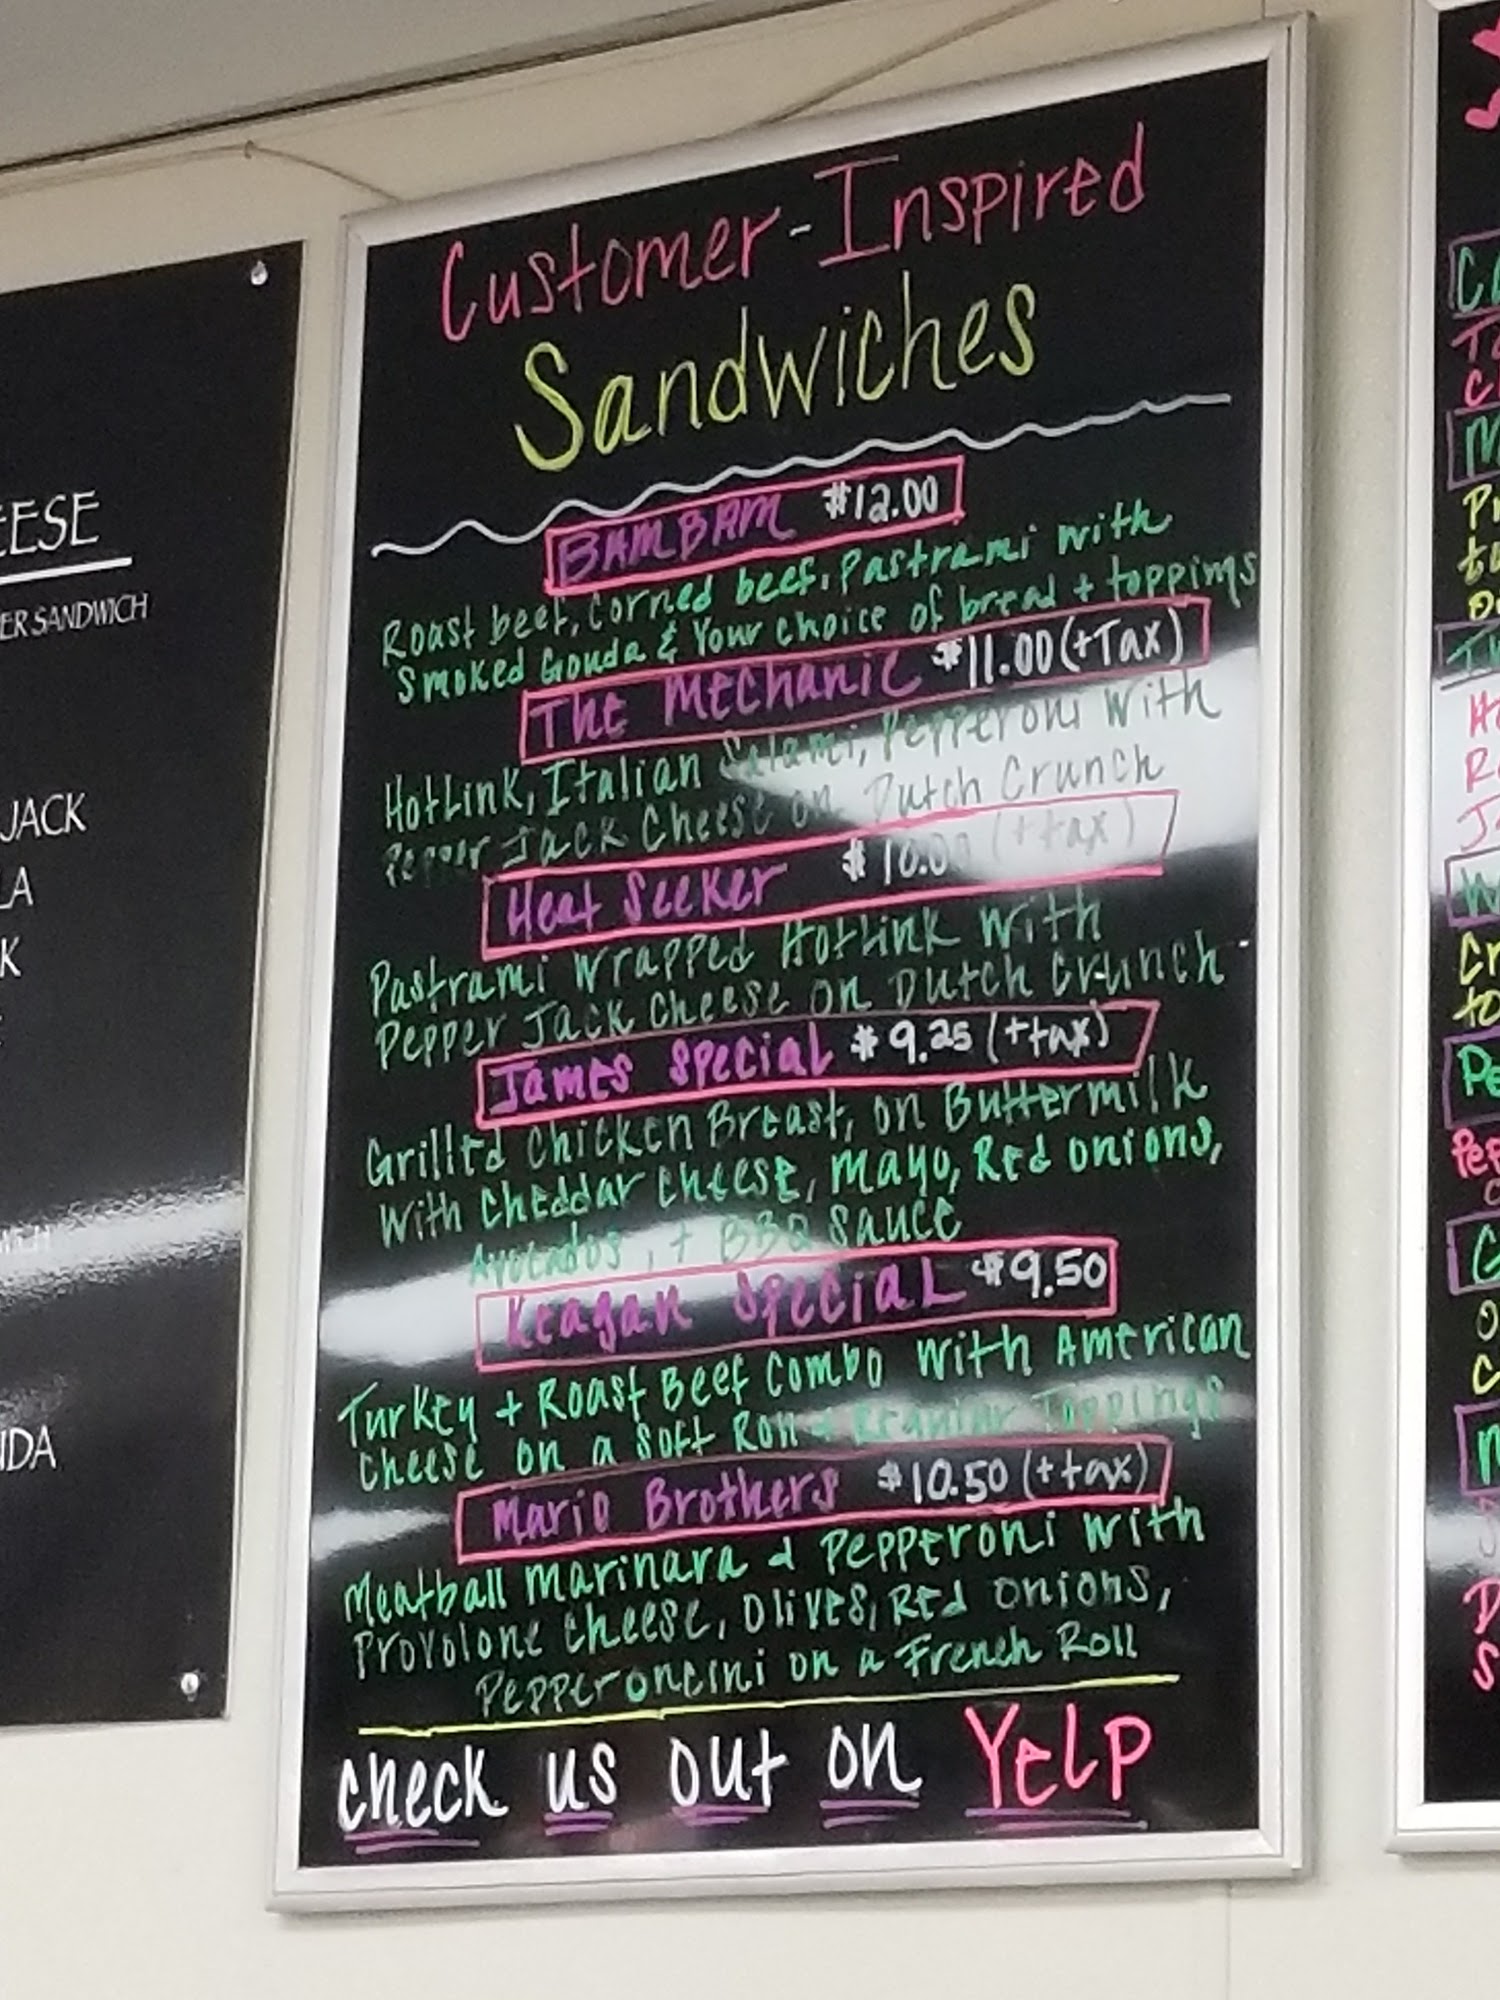 EESE
ER SANDWICH
JACK
LA
K
WICH
NDA
Customer-Inspired
Sandwiches
BAMBAM $12.00
Roast beef, Corned beef, Pastrami with
Smoked Gouda & Your choice of bread + toppings
The Mechanic $11.00 (+Tax)
HotLink, Italian Salami, Pepperoni with
Pepper Jack Cheese on Dutch Crunch
Heat Seeker $10.00 (+tax)
Pastrami wrapped HotLink with
Pepper Jack Cheese on Dutch Crunch
James Special $9.25 (+tax)
Grilled Chicken Breast, on Buttermilk
With Cheddar Cheese, Mayo, Red Onions,
Avocados, + BBQ Sauce
Keagan Special $9.50
Turkey + Roast Beef Combo With American
Cheese on a Soft Roll + Regular Toppings
Mario Brothers $10.50 (+tax)
Meatball Marinara & Pepperoni with
Provolone Cheese, Olives, Red Onions,
Pepperoncini on a French Roll
Check us out on Yelp